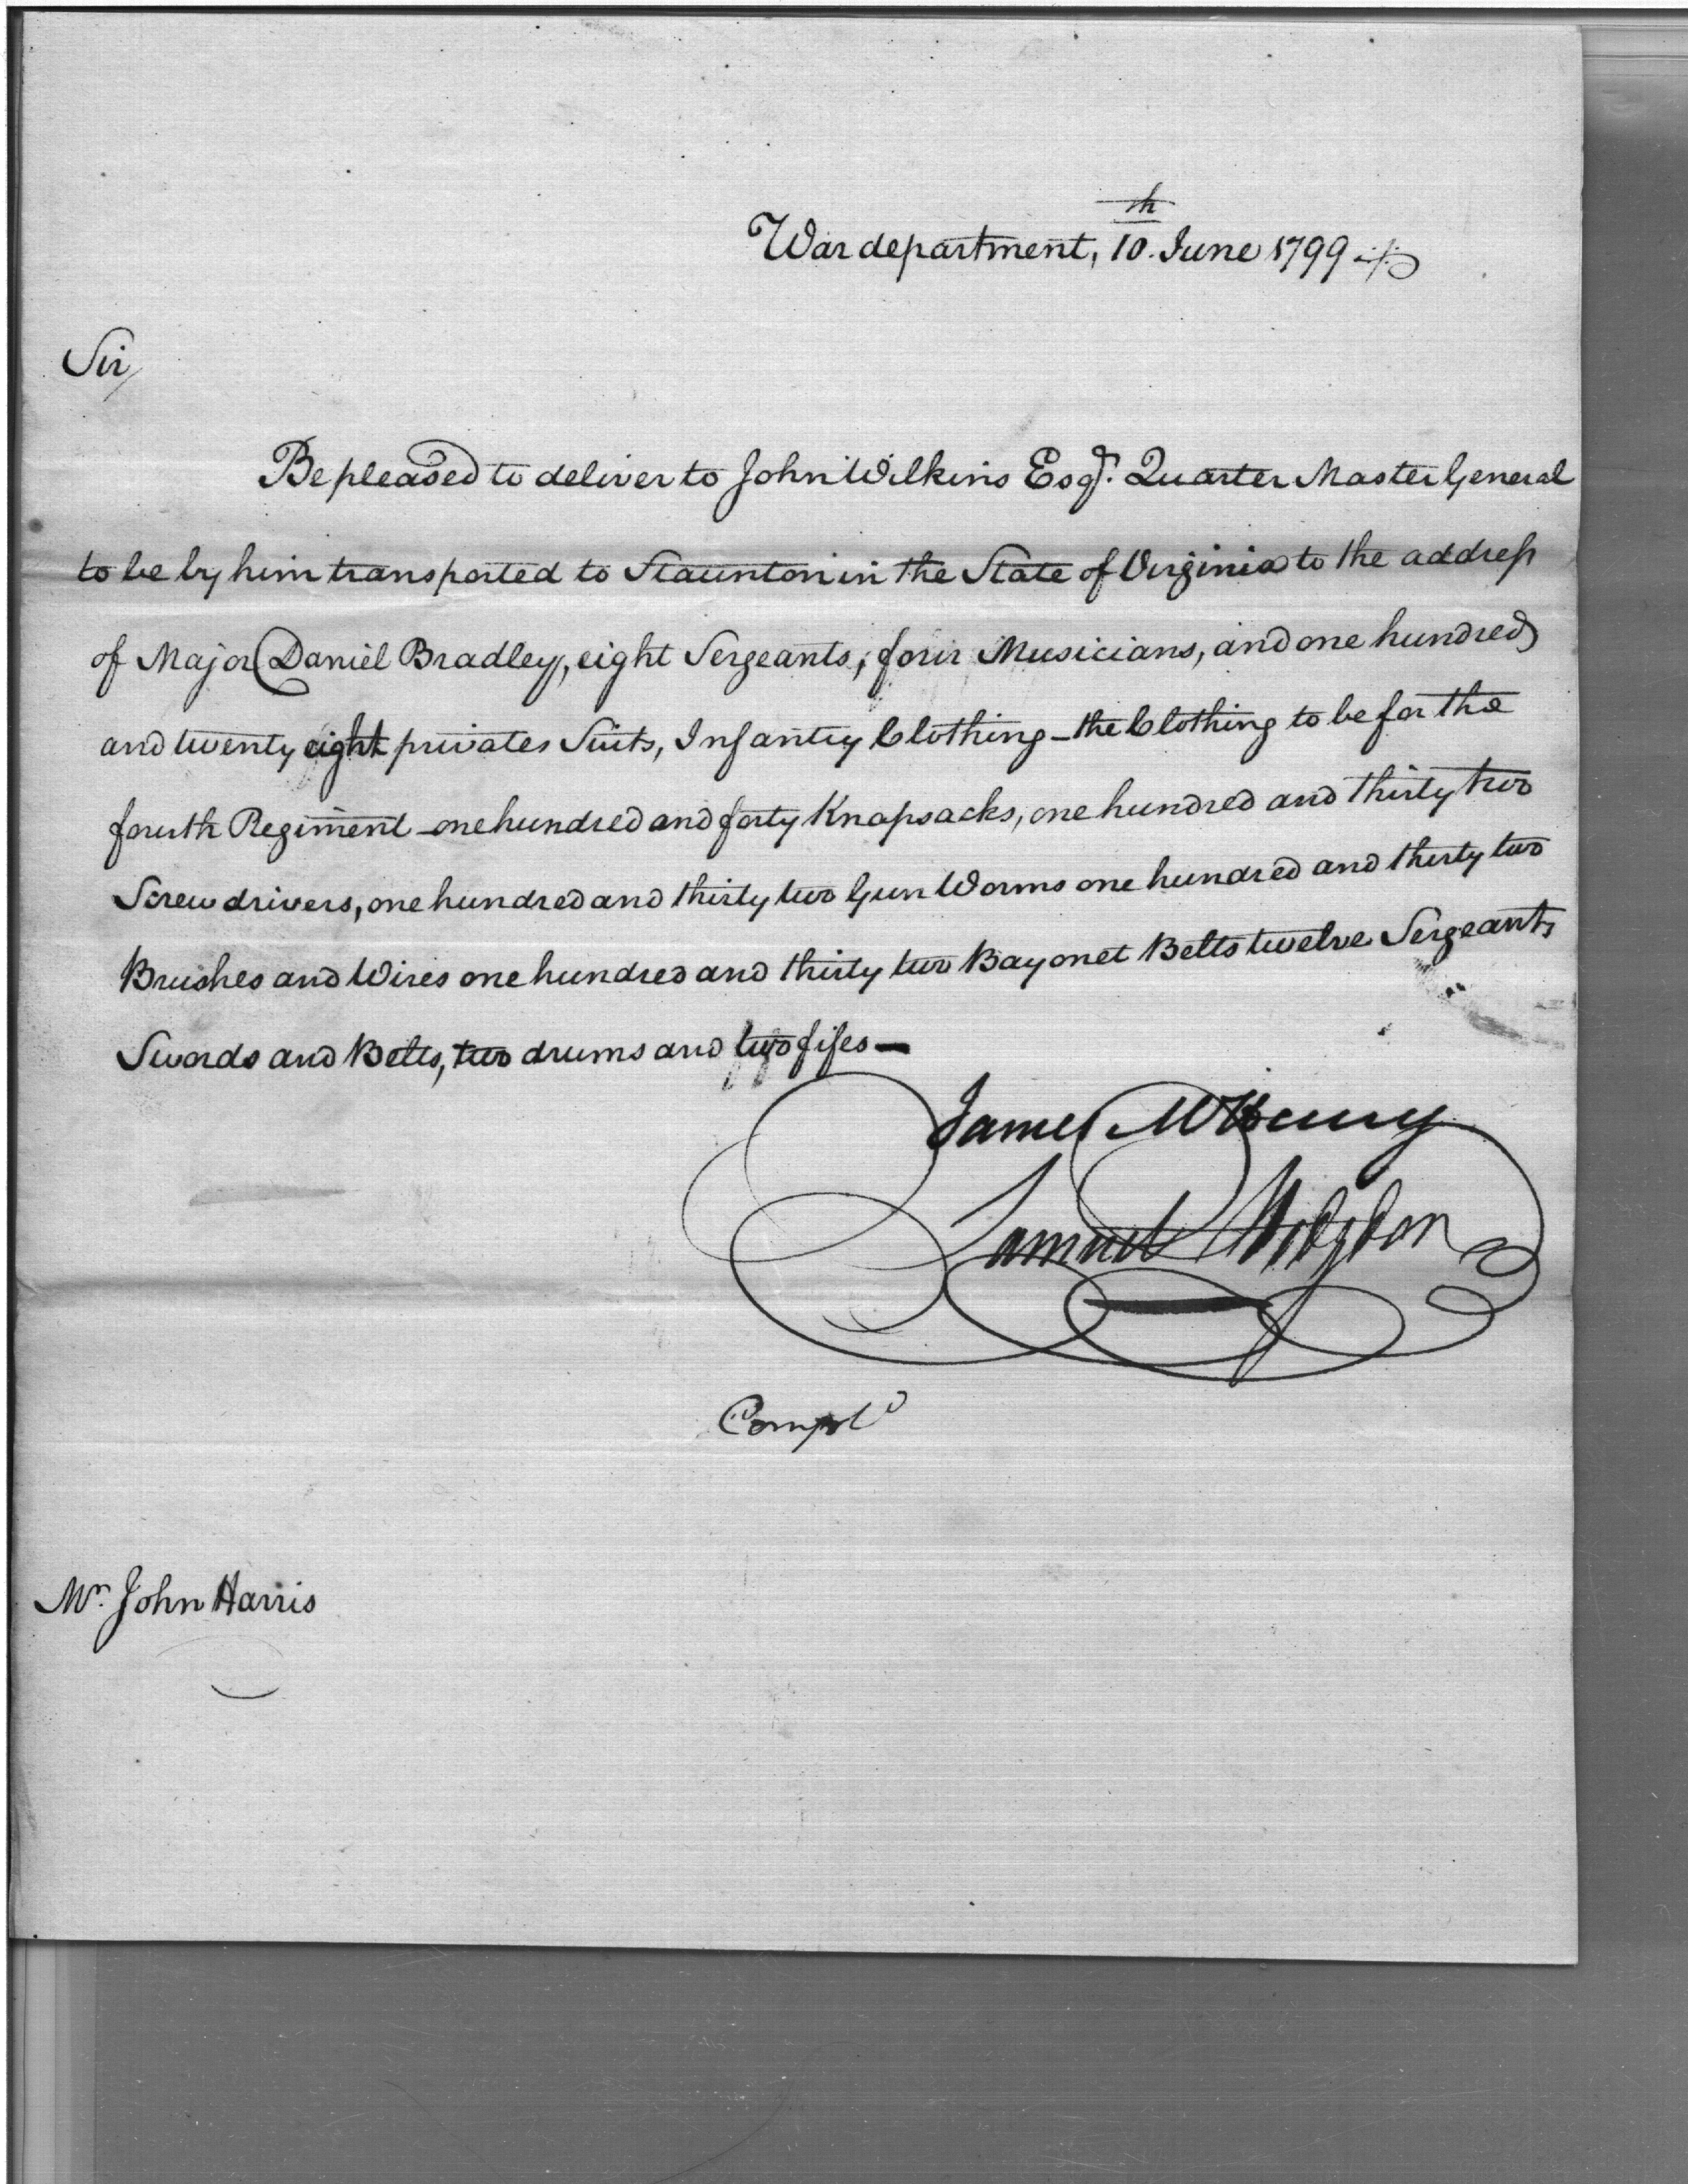 War department, 10th. June 1799
Sir,
Be pleased to deliver to John Wilkins Esqr. Quarter Master General
to be by him transported to Staunton in the State of Virginia to the address
of Major Daniel Bradley, eight Sergeants, four Musicians, and one hundred
and twenty eight privates Suits, Infantry Clothing - the Clothing to be for the
fourth Regiment - one hundred and forty Knapsacks, one hundred and thirty two
Screw drivers, one hundred and thirty two Gun Worms one hundred and thirty two
Brushes and Wires one hundred and thirty two Bayonet Belts twelve Sergeants
Swords and Belts, two drums and two fifes —
James McHenry
Samuel Hodgdon
Compld
Mr. John Harris